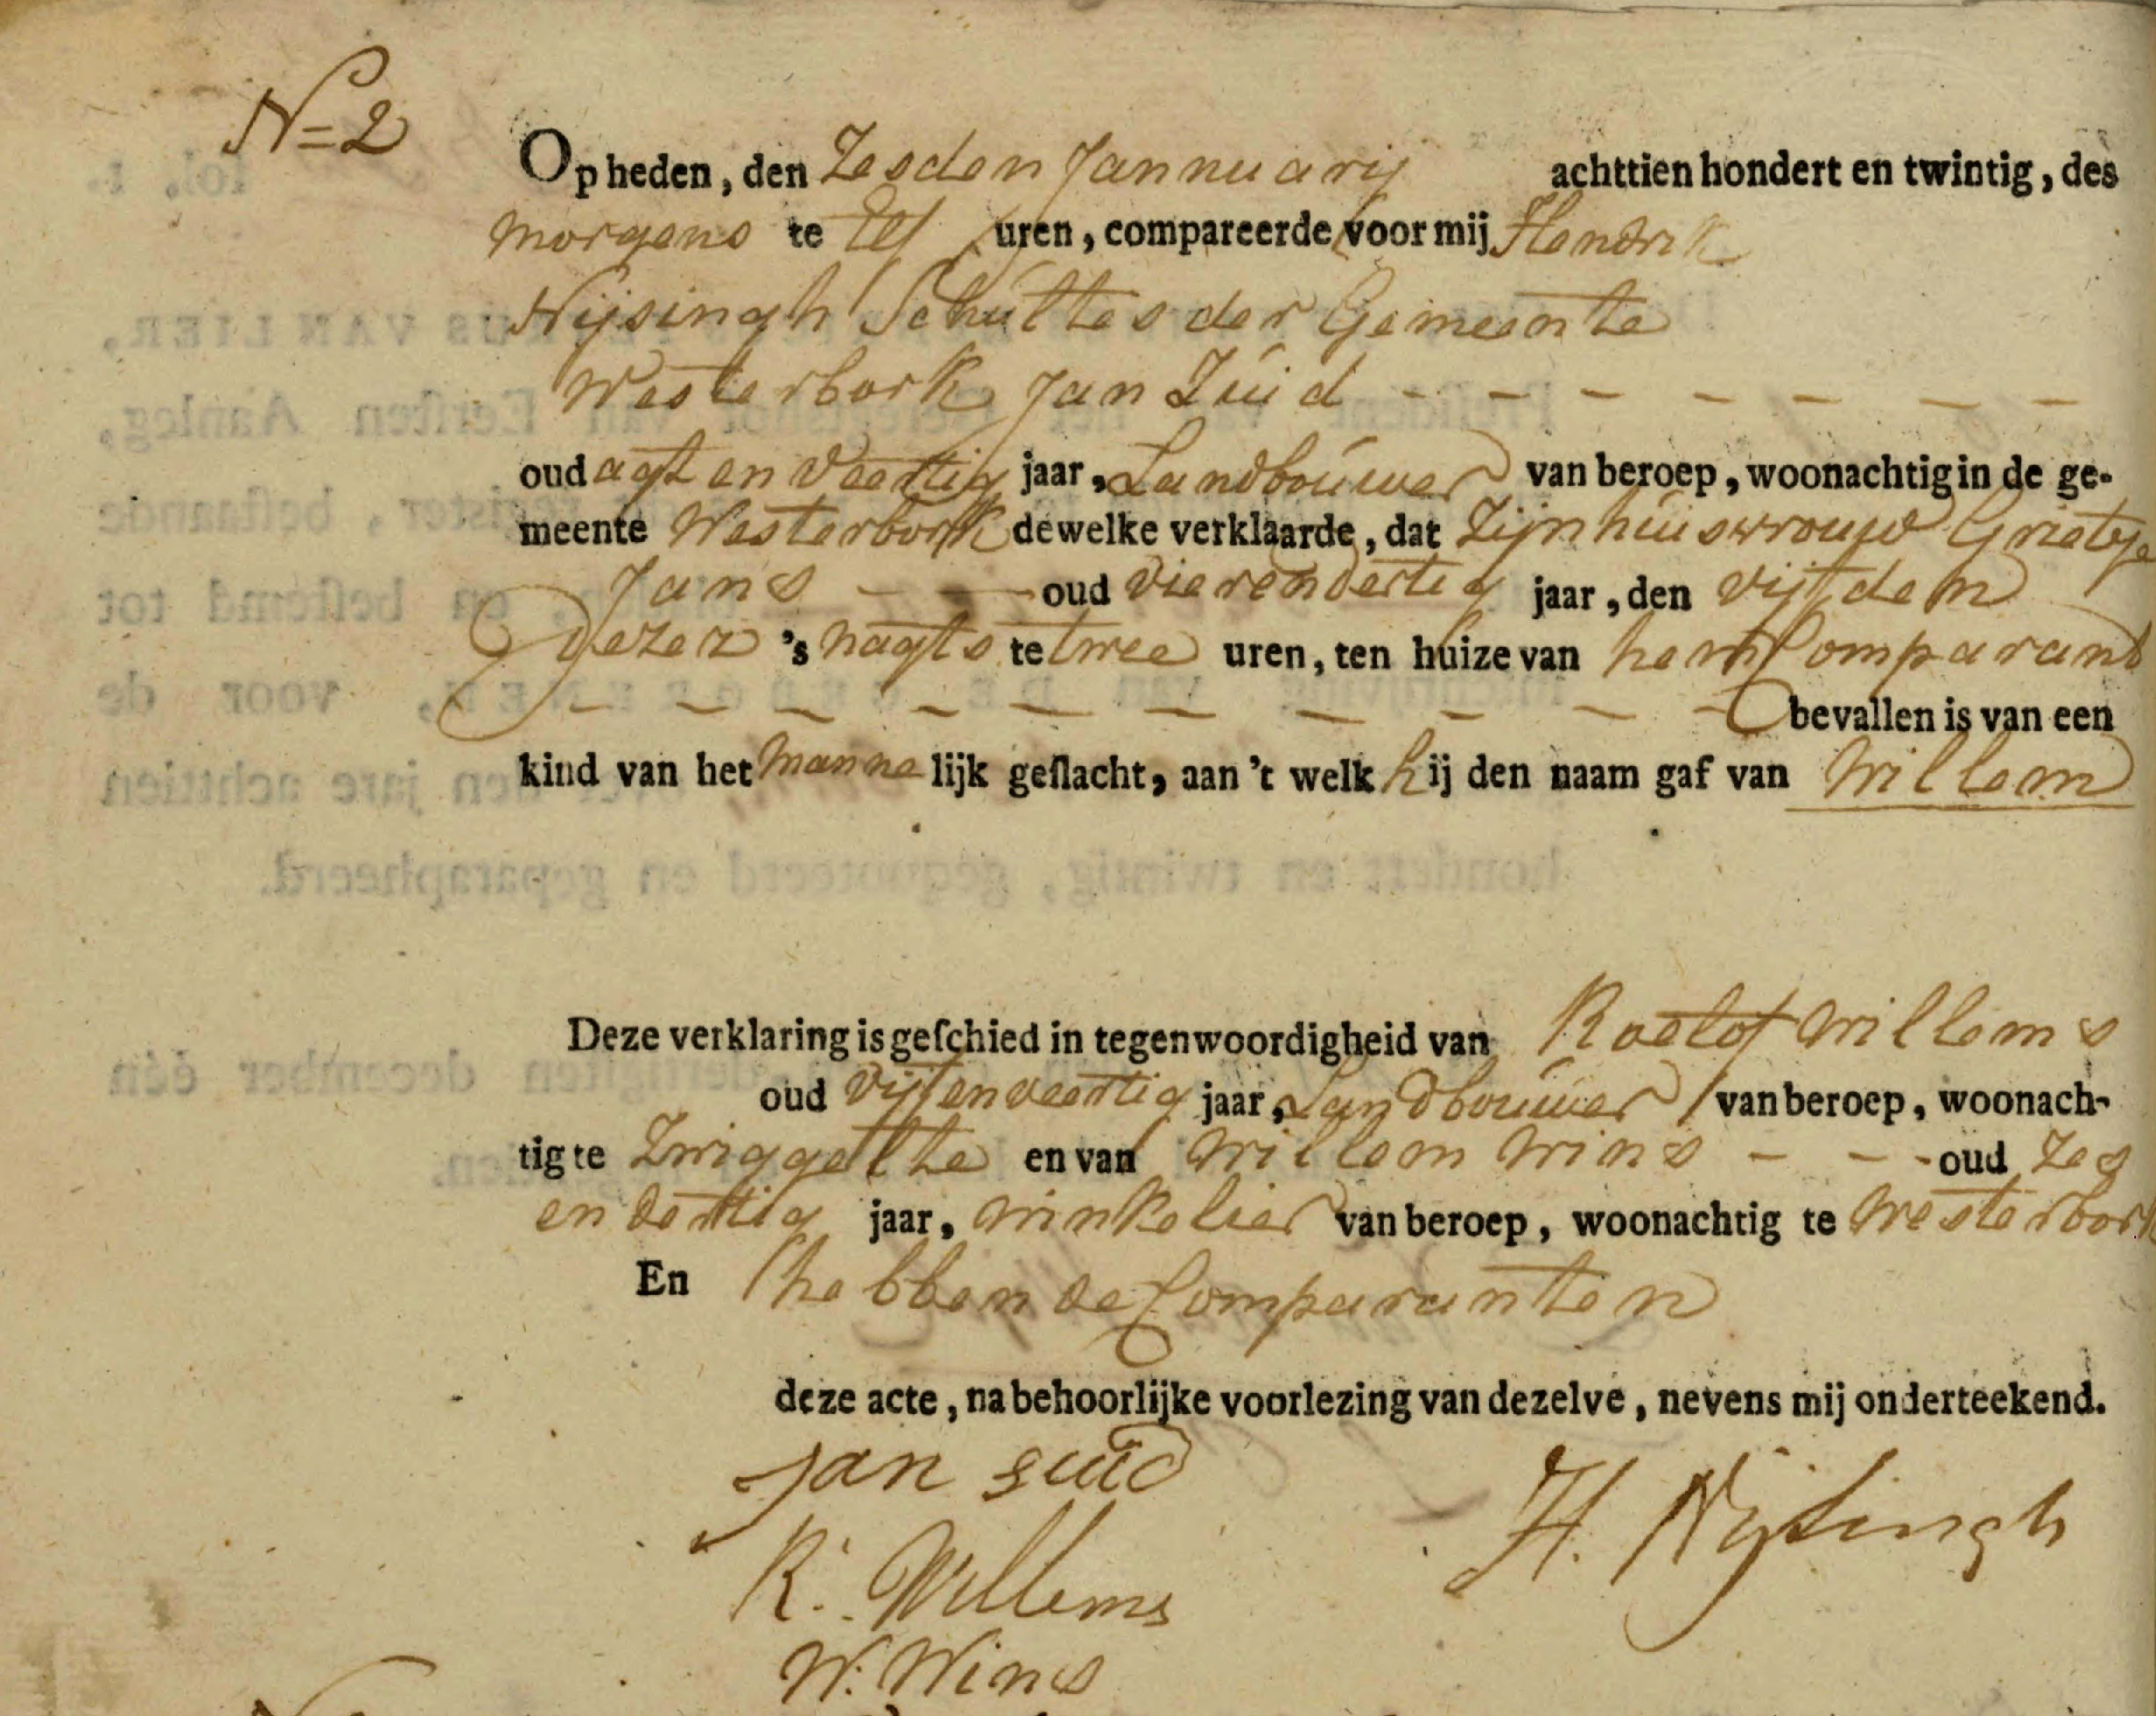 N=2
Op heden, den Zesden Jannuarij achttien hondert en twintig, des
morgens te Elf uren, compareerde voor mij Hendrik
Nijsingh Schultes der Gemeente
Westerbork Jan Zuid - - - - - - -
oud agt en Veertig jaar, Landbouwer van beroep, woonachtig in de ge-
meente Westerbork dewelke verklaarde, dat Zijn huisvrouw Grietje
Jans - - oud vierendertig jaar, den vijfden
dezer 's nagts te twee uren, ten huize van hem Comparant
- - - - - - - - - - - bevallen is van een
kind van het mannelijk geslacht, aan 't welk hij den naam gaf van Willem
Deze verklaring is geschied in tegenwoordigheid van Roelof Willems
oud vijfenveertig jaar, Landbouwer van beroep, woonach-
tig te Zwiggelte en van Willem Wins - - - oud Zes
en dertig jaar, winkelier van beroep, woonachtig te Westerbork
En hebben de Comparanten
deze acte, na behoorlijke voorlezing van dezelve, nevens mij onderteekend.
Jan suid
H. Nijsingh
R. Willems
W. Wins